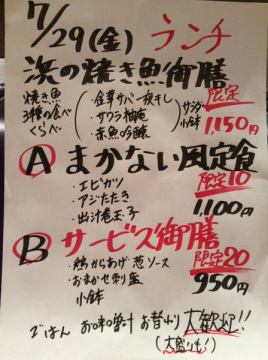 7/29(金) ランチ
浜の焼き魚御膳
焼き魚
3種の食べ
くらべ
・金華サバ一夜干し
・サワラ柚庵
・赤魚吟醸
サラダ
小鉢
限定
1,150円
Ⓐ まかない風定食
・エビカツ
・アジたたき
・出汁巻玉子
限定10
1,100円
Ⓑ サービス御膳
・鶏からあげ 葱ソース
・おまかせ刺盛
小鉢
限定20
950円
ごはん お味噌汁 お替わり 大歓迎!!
(大盛りも!)